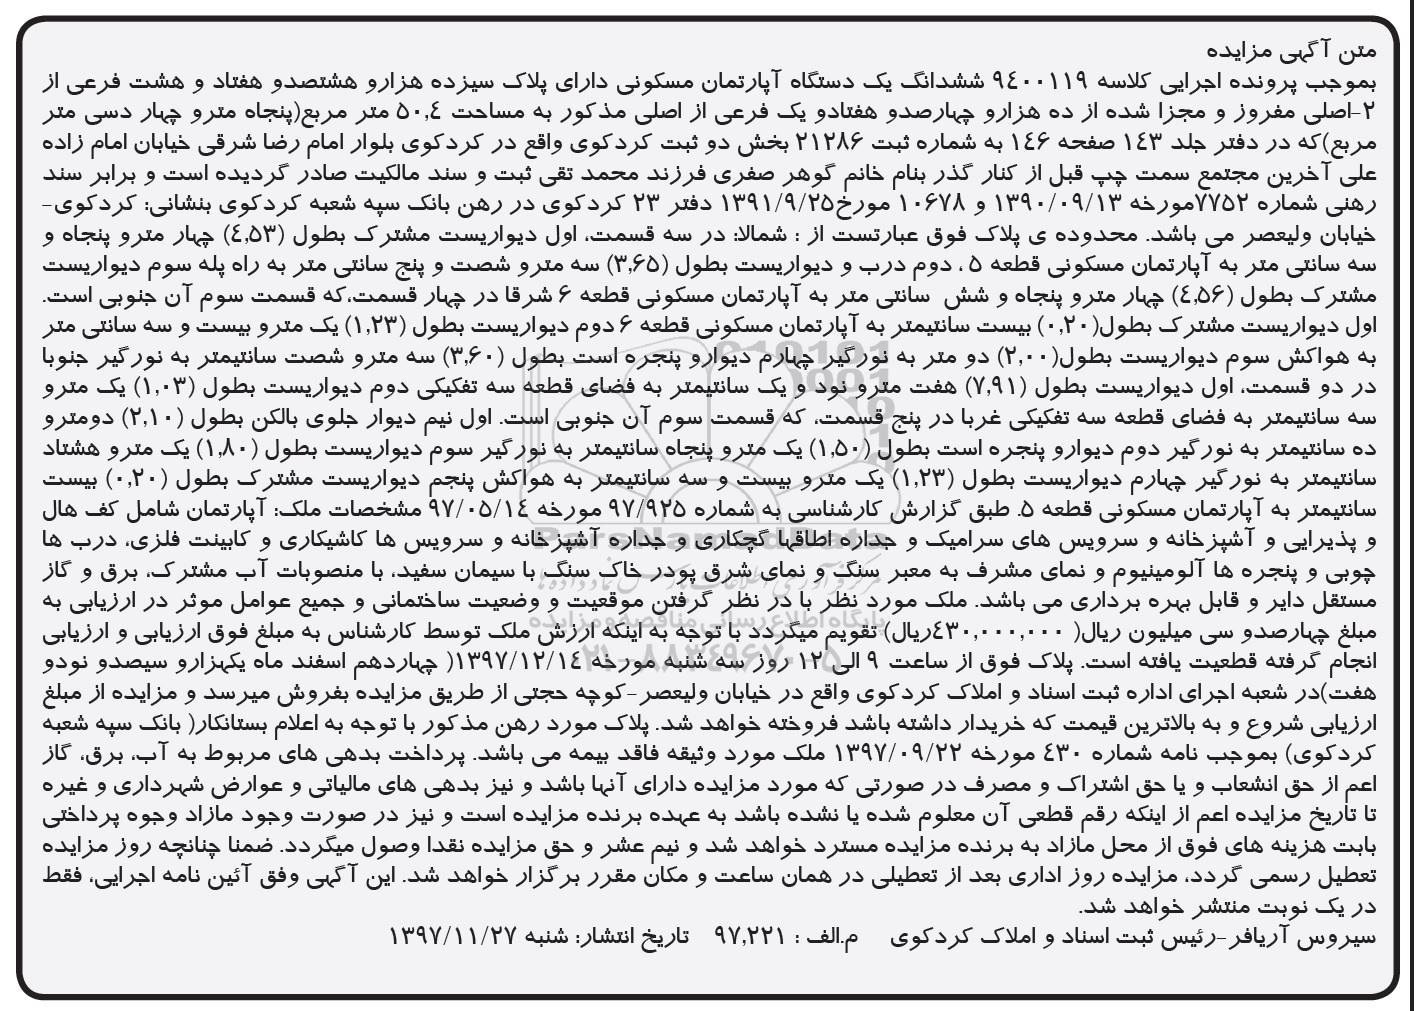 متن آگهی مزایده
بموجب پرونده اجرایی کلاسه ٩٤٠٠١١٩ ششدانگ یک دستگاه آپارتمان مسکونی دارای پلاک سیزده هزارو هشتصدو هفتاد و هشت فرعی از
٢-اصلی مفروز و مجزا شده از ده هزارو چهارصدو هفتادو یک فرعی از اصلی مذکور به مساحت ۵۰,٤ متر مربع(پنجاه مترو چهار دسی متر
مربع)که در دفتر جلد ١٤٣ صفحه ١٤۶ به شماره ثبت ٢١٢٨۶ بخش دو ثبت کردکوی واقع در کردکوی بلوار امام رضا شرقی خیابان امام زاده
علی آخرین مجتمع سمت چپ قبل از کنار گذر بنام خانم گوهر صفری فرزند محمد تقی ثبت و سند مالکیت صادر گردیده است و برابر سند
رهنی شماره ٧٧۵٢مورخه ١٣٩٠/٠٩/١٣ و ١٠۶٧٨ مورخ١٣٩١/٩/٢۵ دفتر ٢٣ کردکوی در رهن بانک سپه شعبه کردکوی بنشانی: کردکوی-
خیابان ولیعصر می باشد. محدوده ی پلاک فوق عبارتست از : شمالا: در سه قسمت، اول دیواریست مشترک بطول (٤,۵٣) چهار مترو پنجاه و
سه سانتی متر به آپارتمان مسکونی قطعه ۵ ، دوم درب و دیواریست بطول (٣,۶۵) سه مترو شصت و پنج سانتی متر به راه پله سوم دیواریست
مشترک بطول (٤,۵۶) چهار مترو پنجاه و شش سانتی متر به آپارتمان مسکونی قطعه ۶ شرقا در چهار قسمت،که قسمت سوم آن جنوبی است.
اول دیواریست مشترک بطول(٠,٢٠) بیست سانتیمتر به آپارتمان مسکونی قطعه ۶ دوم دیواریست بطول (١,٢٣) یک مترو بیست و سه سانتی متر
به هواکش سوم دیواریست بطول(٢,٠٠) دو متر به نورگیر چهارم دیوارو پنجره است بطول (٣,۶٠) سه مترو شصت سانتیمتر به نورگیر جنوبا
در دو قسمت، اول دیواریست بطول (٧,٩١) هفت مترو نود و یک سانتیمتر به فضای قطعه سه تفکیکی دوم دیواریست بطول (١,٠٣) یک مترو
سه سانتیمتر به فضای قطعه سه تفکیکی غربا در پنج قسمت، که قسمت سوم آن جنوبی است. اول نیم دیوار جلوی بالکن بطول (٢,١٠) دومترو
ده سانتیمتر به نورگیر دوم دیوارو پنجره است بطول (١,۵٠) یک مترو پنجاه سانتیمتر به نورگیر سوم دیواریست بطول (١,٨٠) یک مترو هشتاد
سانتیمتر به نورگیر چهارم دیواریست بطول (١,٢٣) یک مترو بیست و سه سانتیمتر به هواکش پنجم دیواریست مشترک بطول (٠,٢٠) بیست
سانتیمتر به آپارتمان مسکونی قطعه ۵. طبق گزارش کارشناسی به شماره ٩٧/٩٢۵ مورخه ٩٧/٠۵/١٤ مشخصات ملک: آپارتمان شامل کف هال
و پذیرایی و آشپزخانه و سرویس های سرامیک و جداره اطاقها گچکاری و جداره آشپزخانه و سرویس ها کاشیکاری و کابینت فلزی، درب ها
چوبی و پنجره ها آلومینیوم و نمای مشرف به معبر سنگ و نمای شرق پودر خاک سنگ با سیمان سفید، با منصوبات آب مشترک، برق و گاز
مستقل دایر و قابل بهره برداری می باشد. ملک مورد نظر با در نظر گرفتن موقعیت و وضعیت ساختمانی و جمیع عوامل موثر در ارزیابی به
مبلغ چهارصدو سی میلیون ریال( ٤٣٠,٠٠٠,٠٠٠ریال) تقویم میگردد با توجه به اینکه ارزش ملک توسط کارشناس به مبلغ فوق ارزیابی و ارزیابی
انجام گرفته قطعیت یافته است. پلاک فوق از ساعت ٩ الی ١٢ روز سه شنبه مورخه ١٣٩٧/١٢/١٤( چهاردهم اسفند ماه یکهزارو سیصدو نودو
هفت)در شعبه اجرای اداره ثبت اسناد و املاک کردکوی واقع در خیابان ولیعصر-کوچه حجتی از طریق مزایده بفروش میرسد و مزایده از مبلغ
ارزیابی شروع و به بالاترین قیمت که خریدار داشته باشد فروخته خواهد شد. پلاک مورد رهن مذکور با توجه به اعلام بستانکار( بانک سپه شعبه
کردکوی) بموجب نامه شماره ٤٣٠ مورخه ١٣٩٧/٠٩/٢٢ ملک مورد وثیقه فاقد بیمه می باشد. پرداخت بدهی های مربوط به آب، برق، گاز
اعم از حق انشعاب و یا حق اشتراک و مصرف در صورتی که مورد مزایده دارای آنها باشد و نیز بدهی های مالیاتی و عوارض شهرداری و غیره
تا تاریخ مزایده اعم از اینکه رقم قطعی آن معلوم شده یا نشده باشد به عهده برنده مزایده است و نیز در صورت وجود مازاد وجوه پرداختی
بابت هزینه های فوق از محل مازاد به برنده مزایده مسترد خواهد شد و نیم عشر و حق مزایده نقدا وصول میگردد. ضمنا چنانچه روز مزایده
تعطیل رسمی گردد، مزایده روز اداری بعد از تعطیلی در همان ساعت و مکان مقرر برگزار خواهد شد. این آگهی وفق آئین نامه اجرایی، فقط
در یک نوبت منتشر خواهد شد.
سیروس آریافر-رئیس ثبت اسناد و املاک کردکوی م.الف : ٩٧,٢٢١ تاریخ انتشار: شنبه ١٣٩٧/١١/٢٧
ParsNamadData
پایگاه اطلاع رسانی مناقصه و مزایده